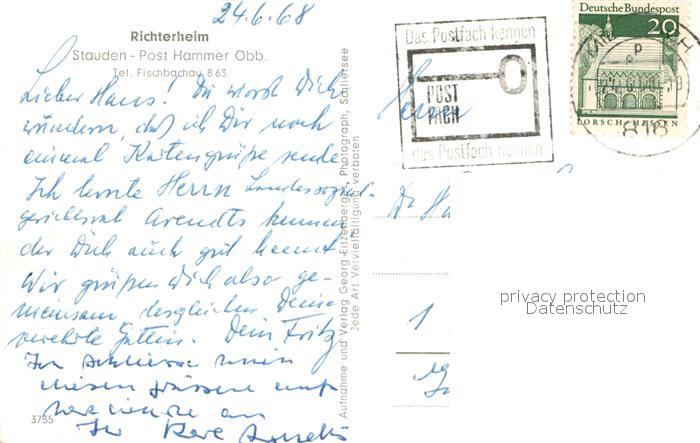 24.6.68
Richterheim
Stauden - Post Hammer Obb.
Tel. Fischbachau 863
Lieber Hans! Du wirst Dich
wundern, daß ich Dir noch
einmal Kartengrüße sende
Ich lernte Herrn Landessozial-
gerichtsrat Arendts kennen,
der Dich auch gut kennt.
Wir grüßen Dich also ge-
meinsam, desgleichen Deine
verehrte Gattin. Dein Fritz
Ich schliesse mich
diesen Grüssen auf
herzlichste an
Ihr Arendts
3735
Aufnahme und Verlag Georg Eitzenberger, Photograph, Schliersee
Jede Art Vervielfältigung verboten
Das Postfach kennen
POST
FACH
das Postfach nennen
Deutsche Bundespost
20
LORSCH/HESSEN
818
Herrn
Dr
1
privacy protection
Datenschutz